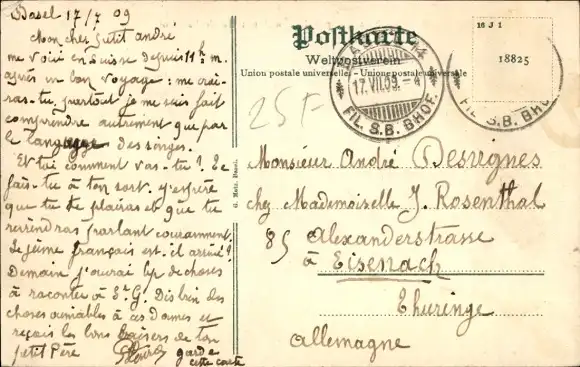 Basel 17/7 09
Mon cher petit andré
me voici en Suisse depuis 11h m.
après un bon voyage: me croi-
ras-tu, partout je me suis fait
comprendre autrement que par
le langage des songes.
Et toi comment vas-tu? Te
fais-tu à ton sort. J'espère
que tu te plairas et que tu
reviendras parlant couramment
Le jeune français est-il arrivé?
Demain j'aurai bp de choses
à raconter à St G. Dis bien des
choses aimables à ces Dames et
reçois les bons baisers de ton
petit Père
garde
cette carte
Postkarte
Weltpostverein
Union postale universelle. - Unione postale universale
BASEL
17.VII.09.-4
FIL. S.B. BHOF.
16 J 1
18825
FIL. S.B. BHOF.
25 F
G. Metz, Basel.
Monsieur André Desvignes
chez Mademoiselle J. Rosenthal
85 Alexanderstrasse
à Eisenach
Thuringe
Allemagne